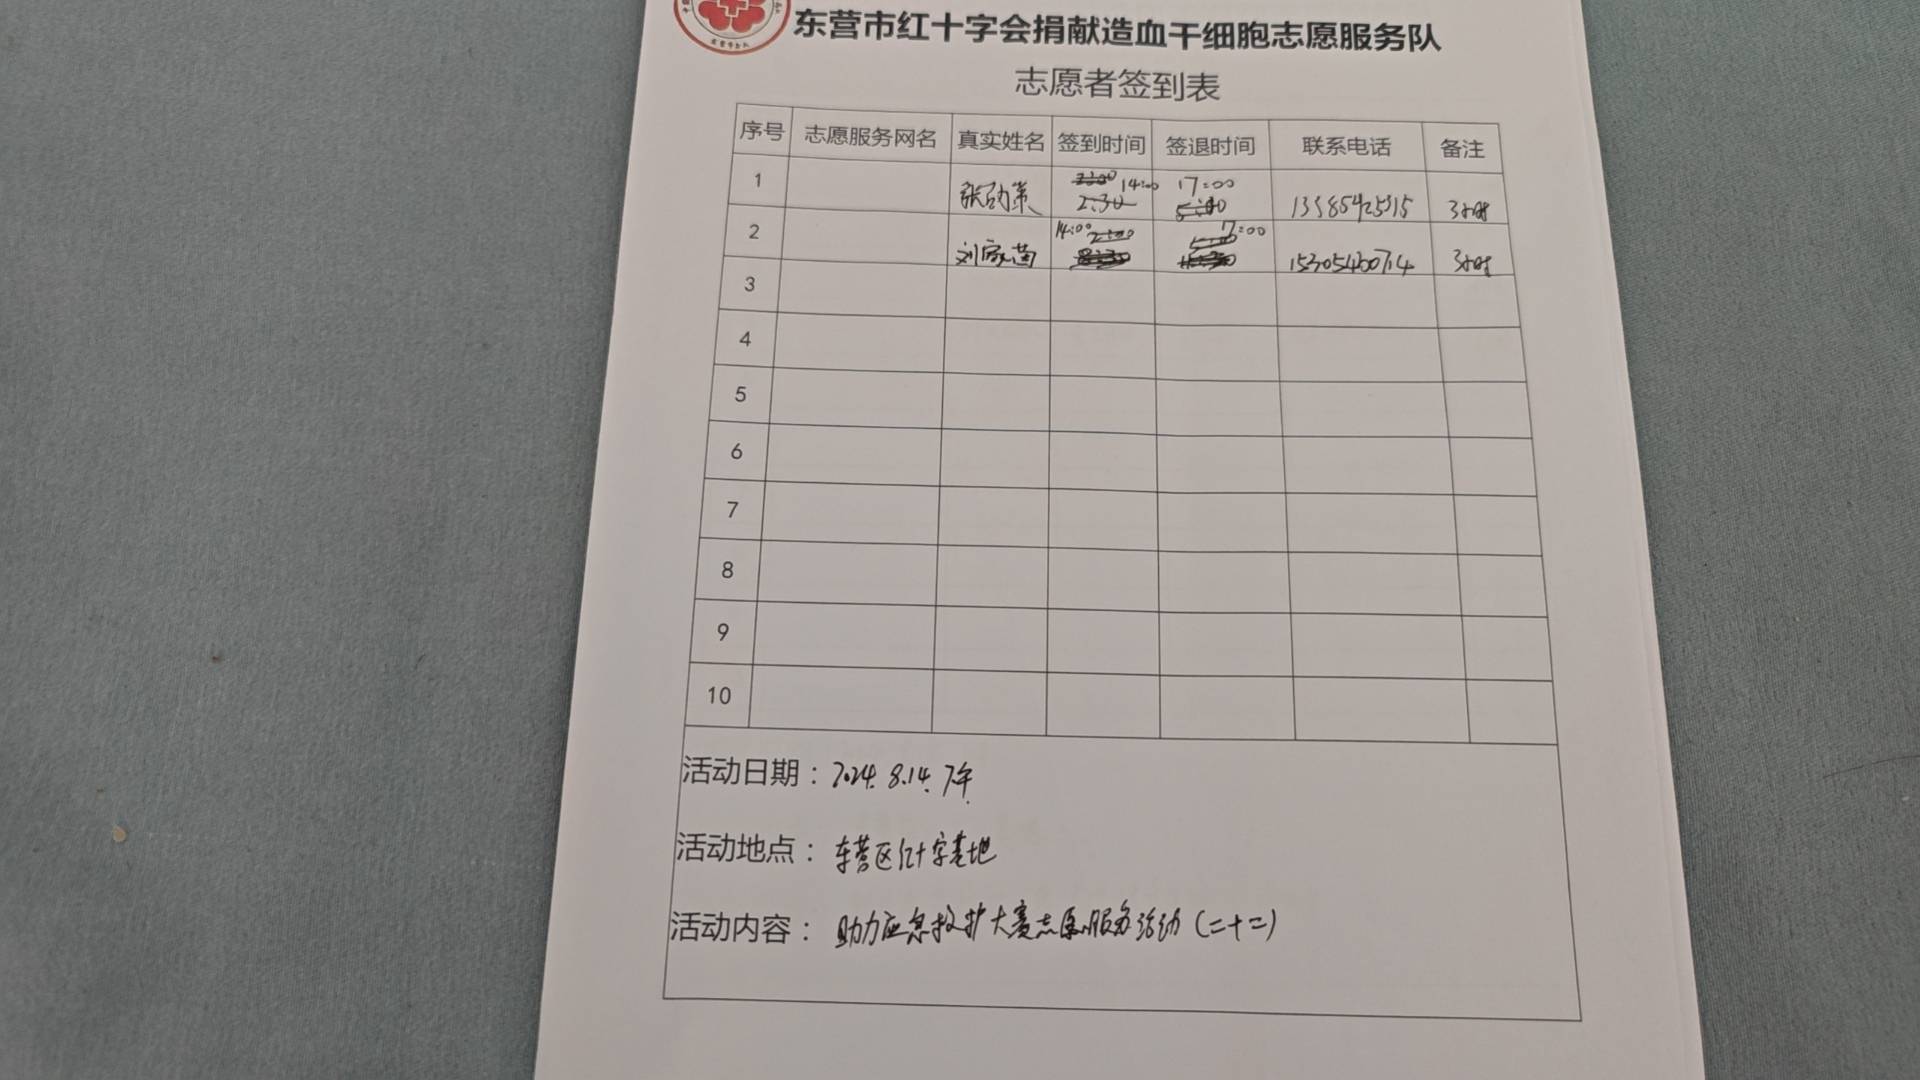 东营市红十字会捐献造血干细胞志愿服务队
志愿者签到表
序号 志愿服务网名 真实姓名 签到时间 签退时间 联系电话 备注
1 14:00 17:00 3小时
2 14:00 17:00 3小时
3
4
5
6
7
8
9
10
活动日期：2024.8.14.下午
活动地点：东营区红十字基地
活动内容：助力应急救护大赛志愿服务活动(二十二)